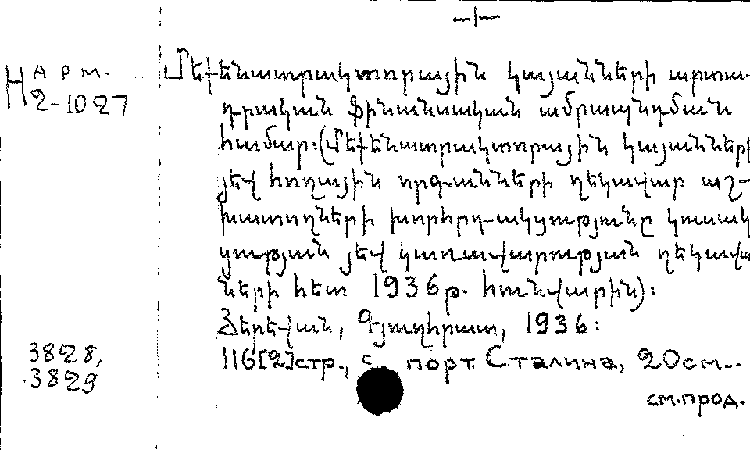 Н АРМ.
2-1027
Մեքենատրակտորային կայանների արտա-
դրական ֆինանսական ամրապնդման
համար.(Մեքենատրակտորային կայանների
յեվ հողային որգանների ղեկավար աշ-
խատողների խորհրդակցությունը կուսակ
ցության յեվ կառավարության ղեկավա
ների հետ 1936թ. հունվարին):
Յերեվան, Գյուղհրատ, 1936:
116[2]стр., с порт Сталина, 20см..
см.прод.
3828,
3829